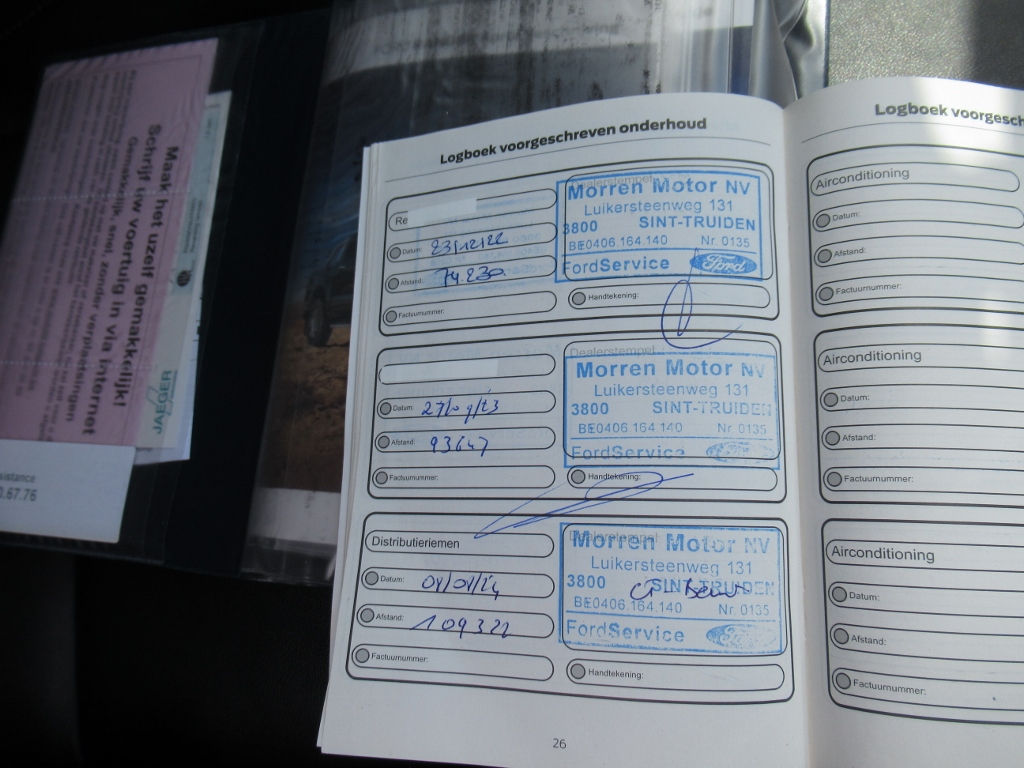 Maak het uzelf gemakkelijk!
Schrijf uw voertuig in via internet
Gemakkelijk, snel, zonder verplaatsingen
JAEGER
.67.76
Logboek voorgeschreven onderhoud
Re
Datum: 23/12/22
Afstand: 74.230
Factuurnummer:
Dealerstempel:
Morren Motor NV
Luikersteenweg 131
3800 SINT-TRUIDEN
BE0406.164.140 Nr. 0135
FordService Ford
Handtekening:
Datum: 27/09/23
Afstand: 93647
Factuurnummer:
Dealerstempel:
Morren Motor NV
Luikersteenweg 131
3800 SINT-TRUIDEN
BE0406.164.140 Nr. 0135
FordService Ford
Handtekening:
Distributieriemen
Datum:
Afstand: 109322
Factuurnummer:
Dealerstempel:
Morren Motor NV
Luikersteenweg 131
3800 SINT-TRUIDEN
BE0406.164.140 Nr. 0135
FordService Ford
Handtekening:
26
Logboek voorgesch
Airconditioning
Datum:
Afstand:
Factuurnummer:
Airconditioning
Datum:
Afstand:
Factuurnummer:
Airconditioning
Datum:
Afstand:
Factuurnummer: